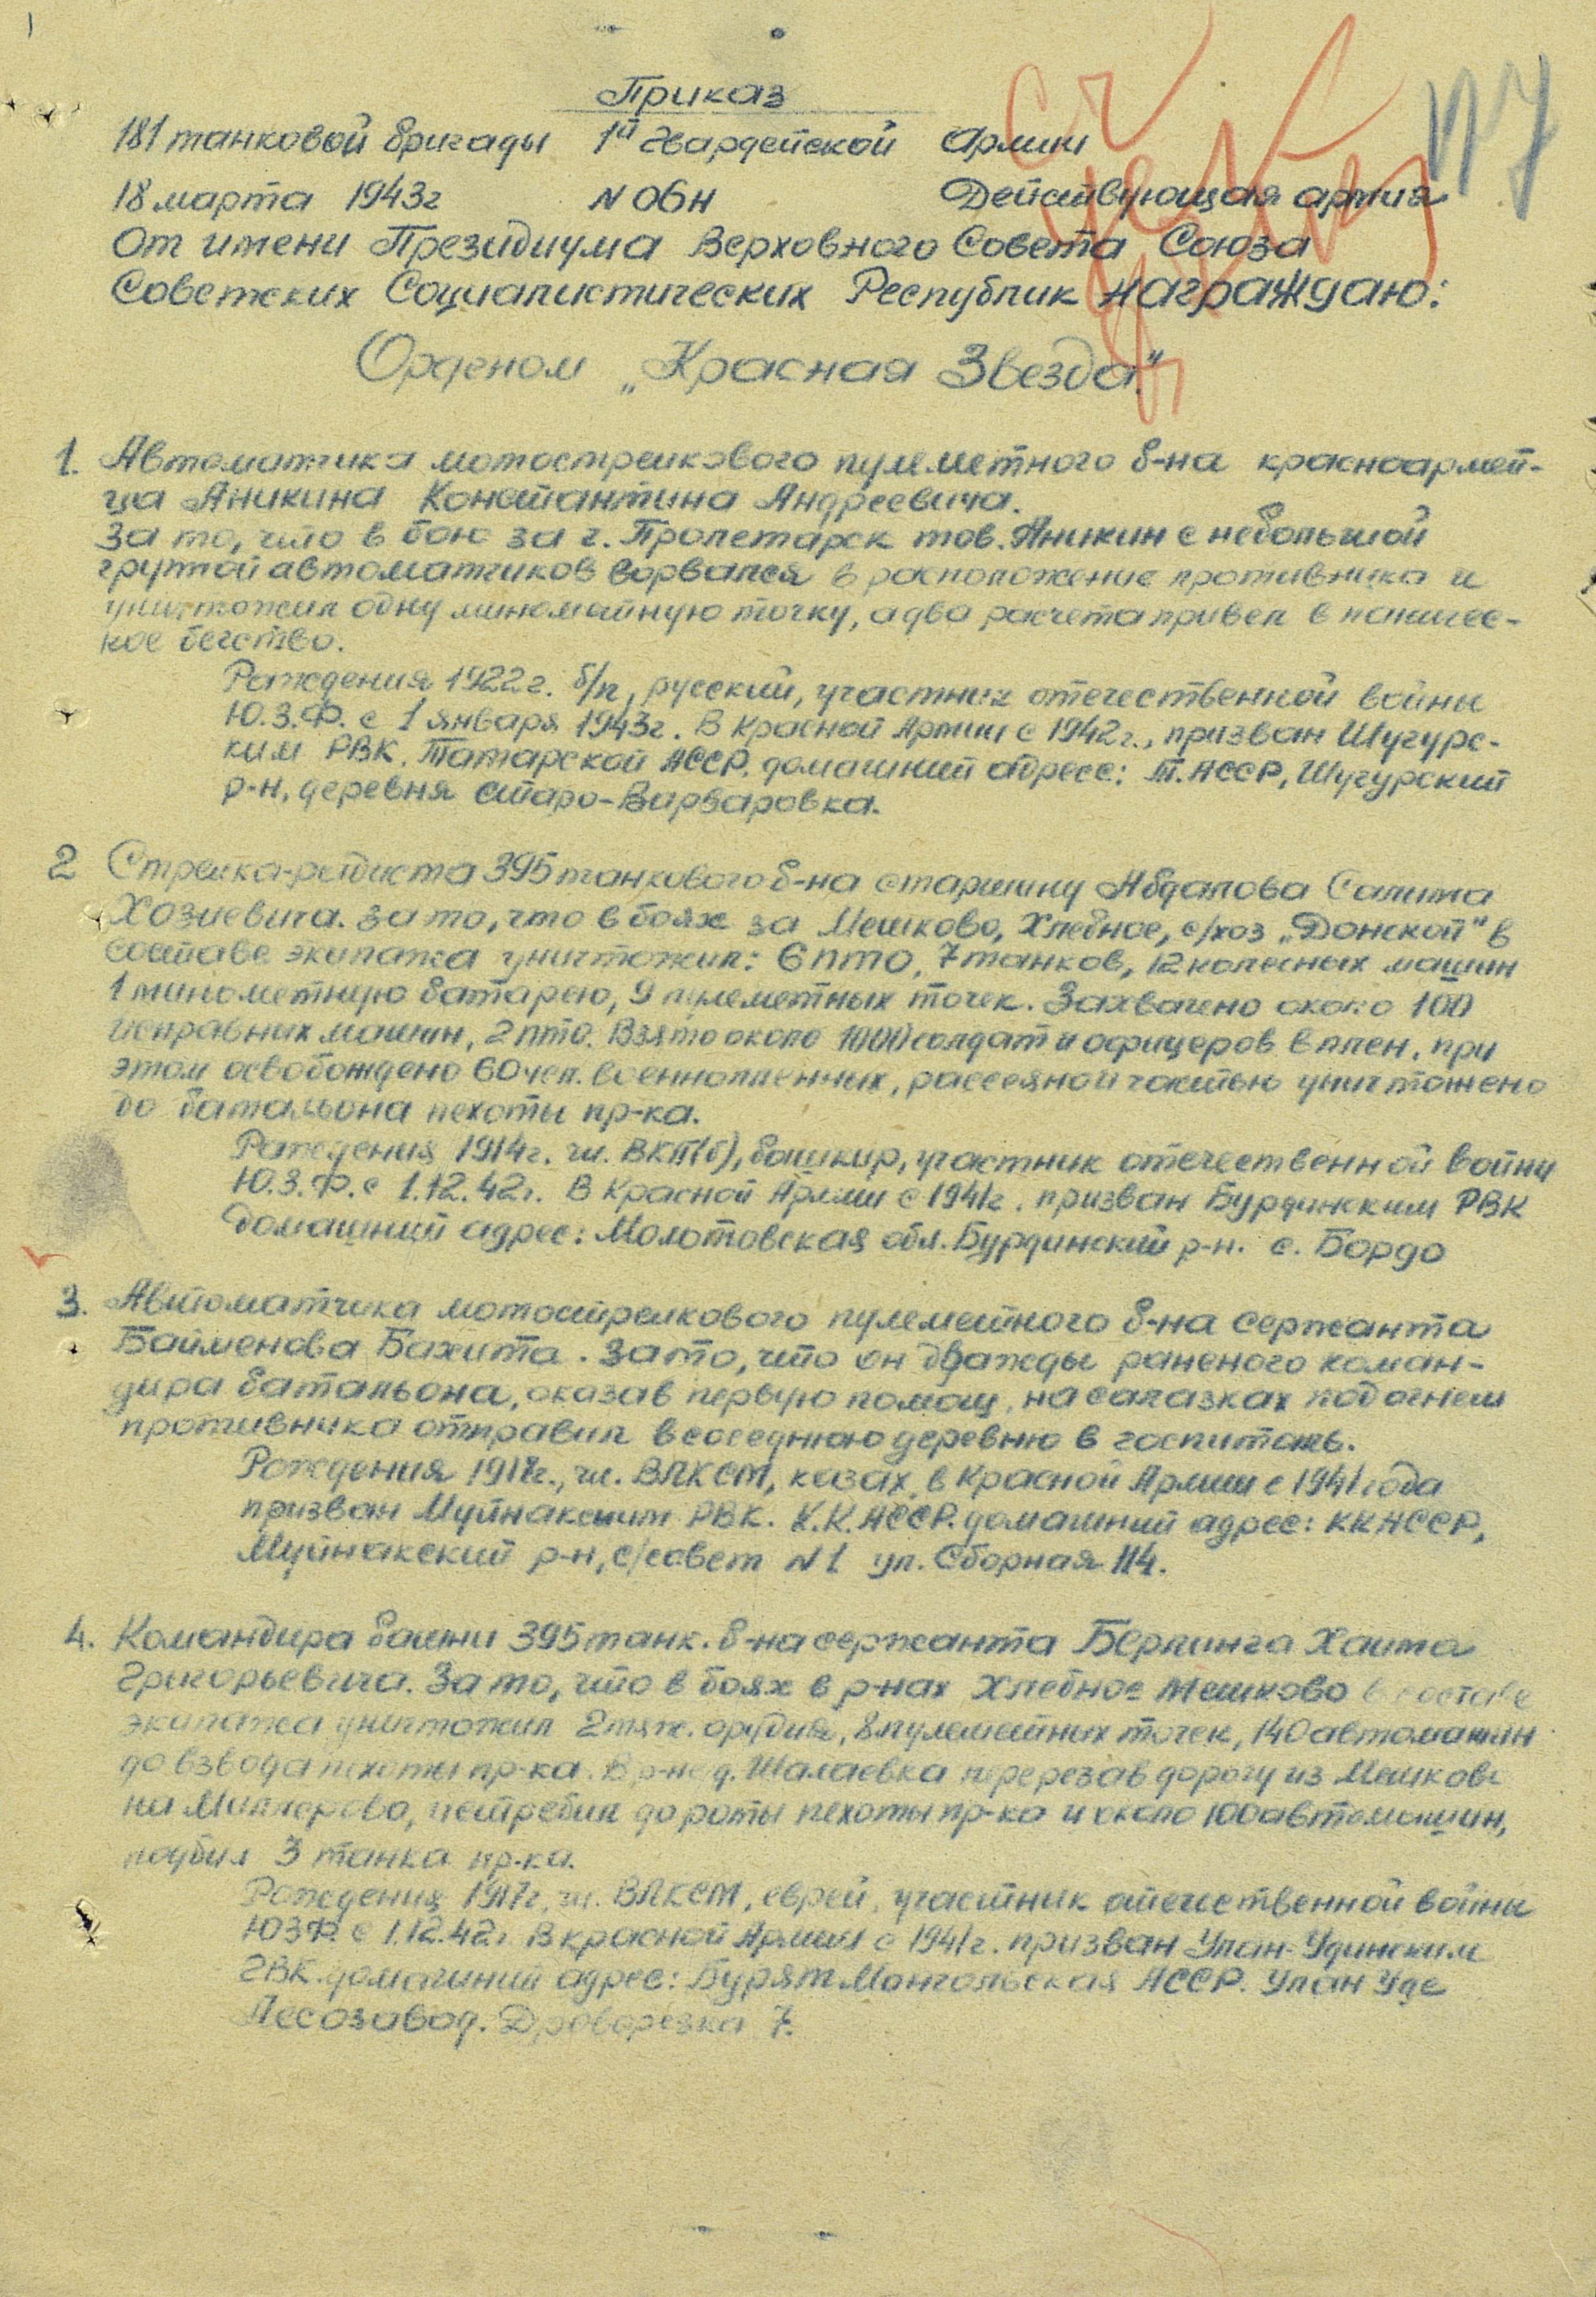 Приказ
181 танковой бригады 1й гвардейской Армии
18 марта 1943г N 06н Действующая армия
От имени Президиума Верховного Совета Союза
Советских Социалистических Республик награждаю:
Орденом „Красная Звезда".
1. Автоматчика мотострелкового пулеметного б-на красноармей-
ца Аникина Константина Андреевича.
За то, что в бою за г. Пролетарск тов. Аникин с небольшой
группой автоматчиков ворвался в расположение противника и
уничтожил одну миномётную точку, а два расчета привел в паничес-
кое бегство.
Рождения 1922г. б/п, русский, участник отечественной войны
Ю.З.Ф. с 1 января 1943г. В Красной Армии с 1942г., призван Шугурс-
ким РВК. Татарской АССР. домашний адресс: Т.АССР, Шугурский
р-н, деревня Старо-Варваровка.
2 Стрелка-радиста 395 танкового б-на старшину Абдалова Салима
Хозиевича. За то, что в боях за Мешково, Хлебное, с/хоз „Донской" в
составе экипажа уничтожил: 6 ПТО, 7 танков, 12 колесных машин
1 минометную батарею, 9 пулеметных точек. Захвачено около 100
исправных машин, 2 ПТО. Взято около 1000 солдат и офицеров в плен, при
этом освобождено 60 чел. военнопленных, рассеяно и частью уничтожено
до батальона пехоты пр-ка.
Рождения 1914г. чл. ВКП(б), башкир, участник отечественной войны
Ю.З.Ф. с 1.12.42г. В Красной Армии с 1941г. призван Бурдинским РВК
Домашний адрес: Молотовская обл. Бурдинский р-н. с. Бордо
3. Автоматчика мотострелкового пулеметного б-на сержанта
Байменова Бахита. За то, что он дважды раненого коман-
дира батальона, оказав первую помощ, на салазках под огнем
противника отправил в соседнюю деревню в госпиталь.
Рождения 1918г., чл. ВЛКСМ, казах, в Красной Армии с 1941 года
призван Муйнакским РВК. К.К.АССР. домашний адрес: ККАССР,
Муйнакский р-н, с/совет N 1 ул. Сборная 114.
4. Командира башни 395 танк. б-на сержанта Берлинга Хаима
Григорьевича. За то, что в боях в р-нах Хлебное Мешково в составе
экипажа уничтожил 2 тяж. орудия, 8 пулеметных точек, 140 автомашин
до взвода пехоты пр-ка. В р-не д. Шалаевка перерезав дорогу из Мешково
на Миллерово, истребил до роты пехоты пр-ка и около 100 автомашин,
подбил 3 танка пр-ка.
Рождения 1917г, чл. ВЛКСМ, еврей, участник отечественной войны
ЮЗФ с 1.12.42г В красной Армии с 1941г. призван Улан-Удинским
ГВК. домашний адрес: Бурят Монгольская АССР. Улан Уде
Лесозавод. Дроворезка 7.